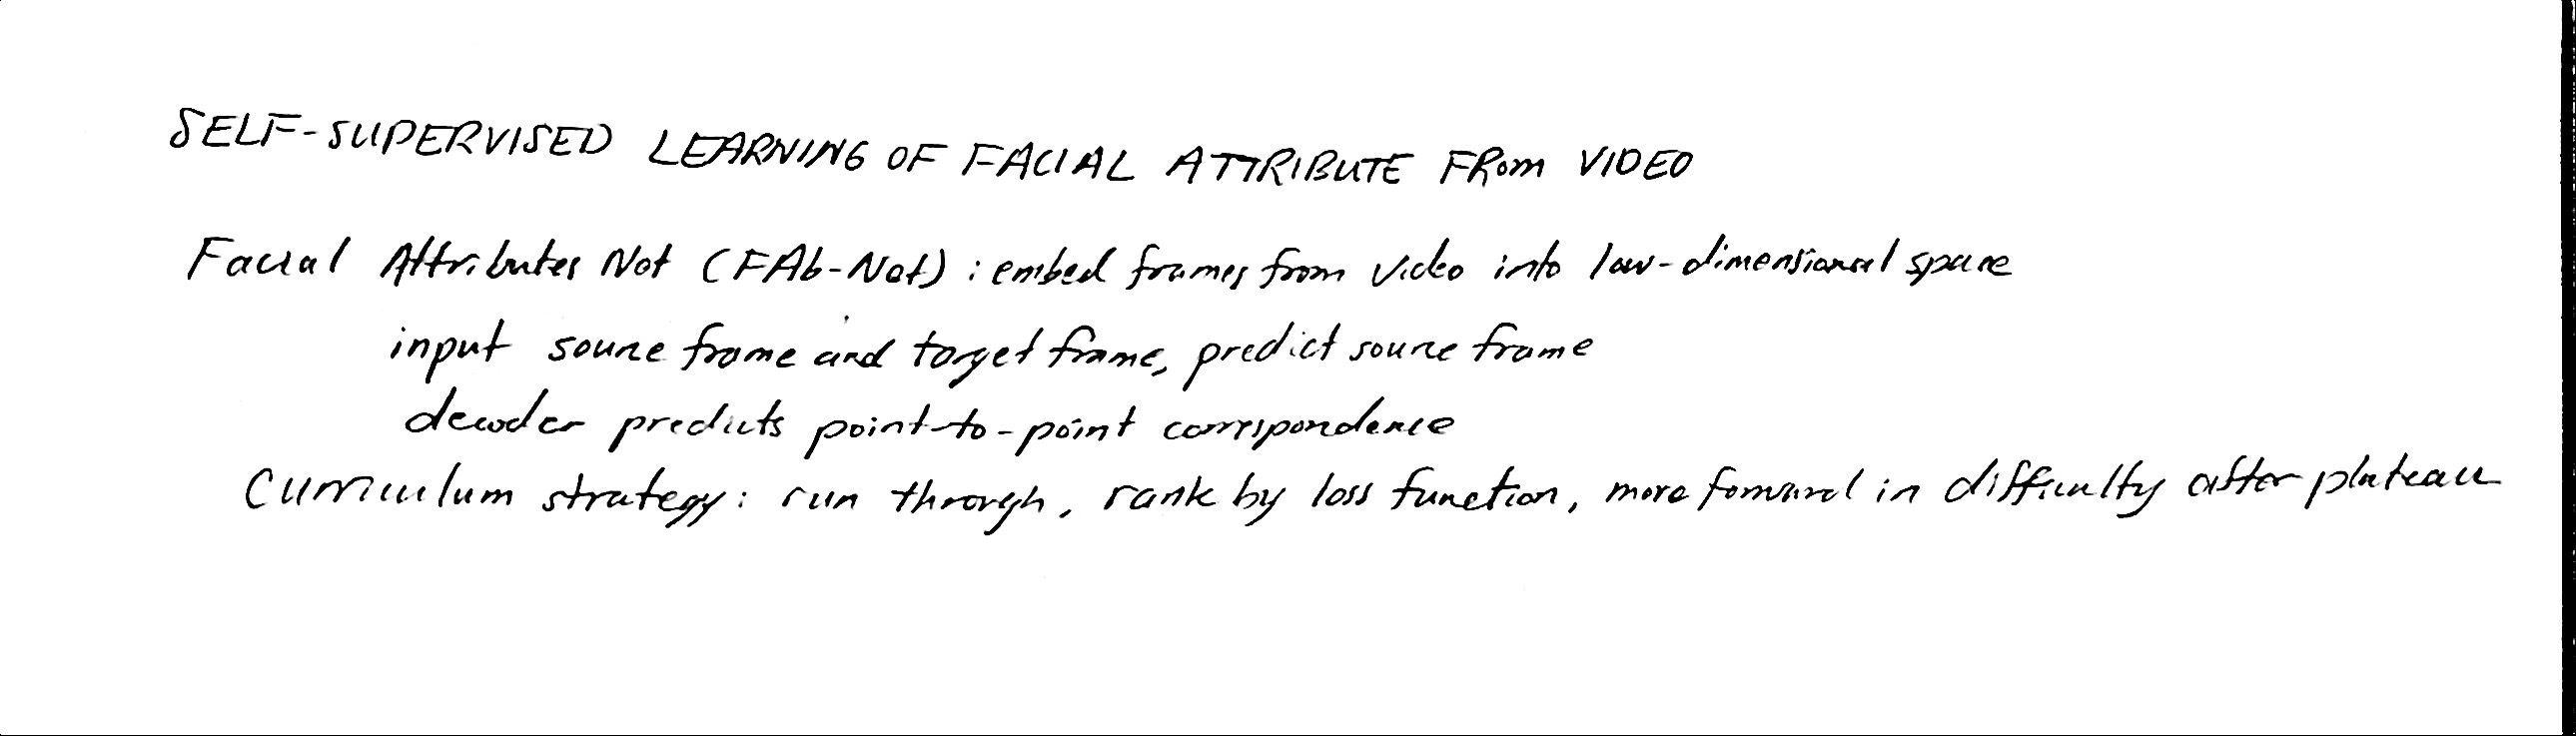 SELF-SUPERVISED LEARNING OF FACIAL ATTRIBUTE FROM VIDEO
Facial Attributes Net (FAb-Net) : embed frames from video into low-dimensional space
input source frame and target frame, predict source frame
decoder predicts point-to-point correspondence
Curriculum strategy: run through, rank by loss function, move forward in difficulty after plateau